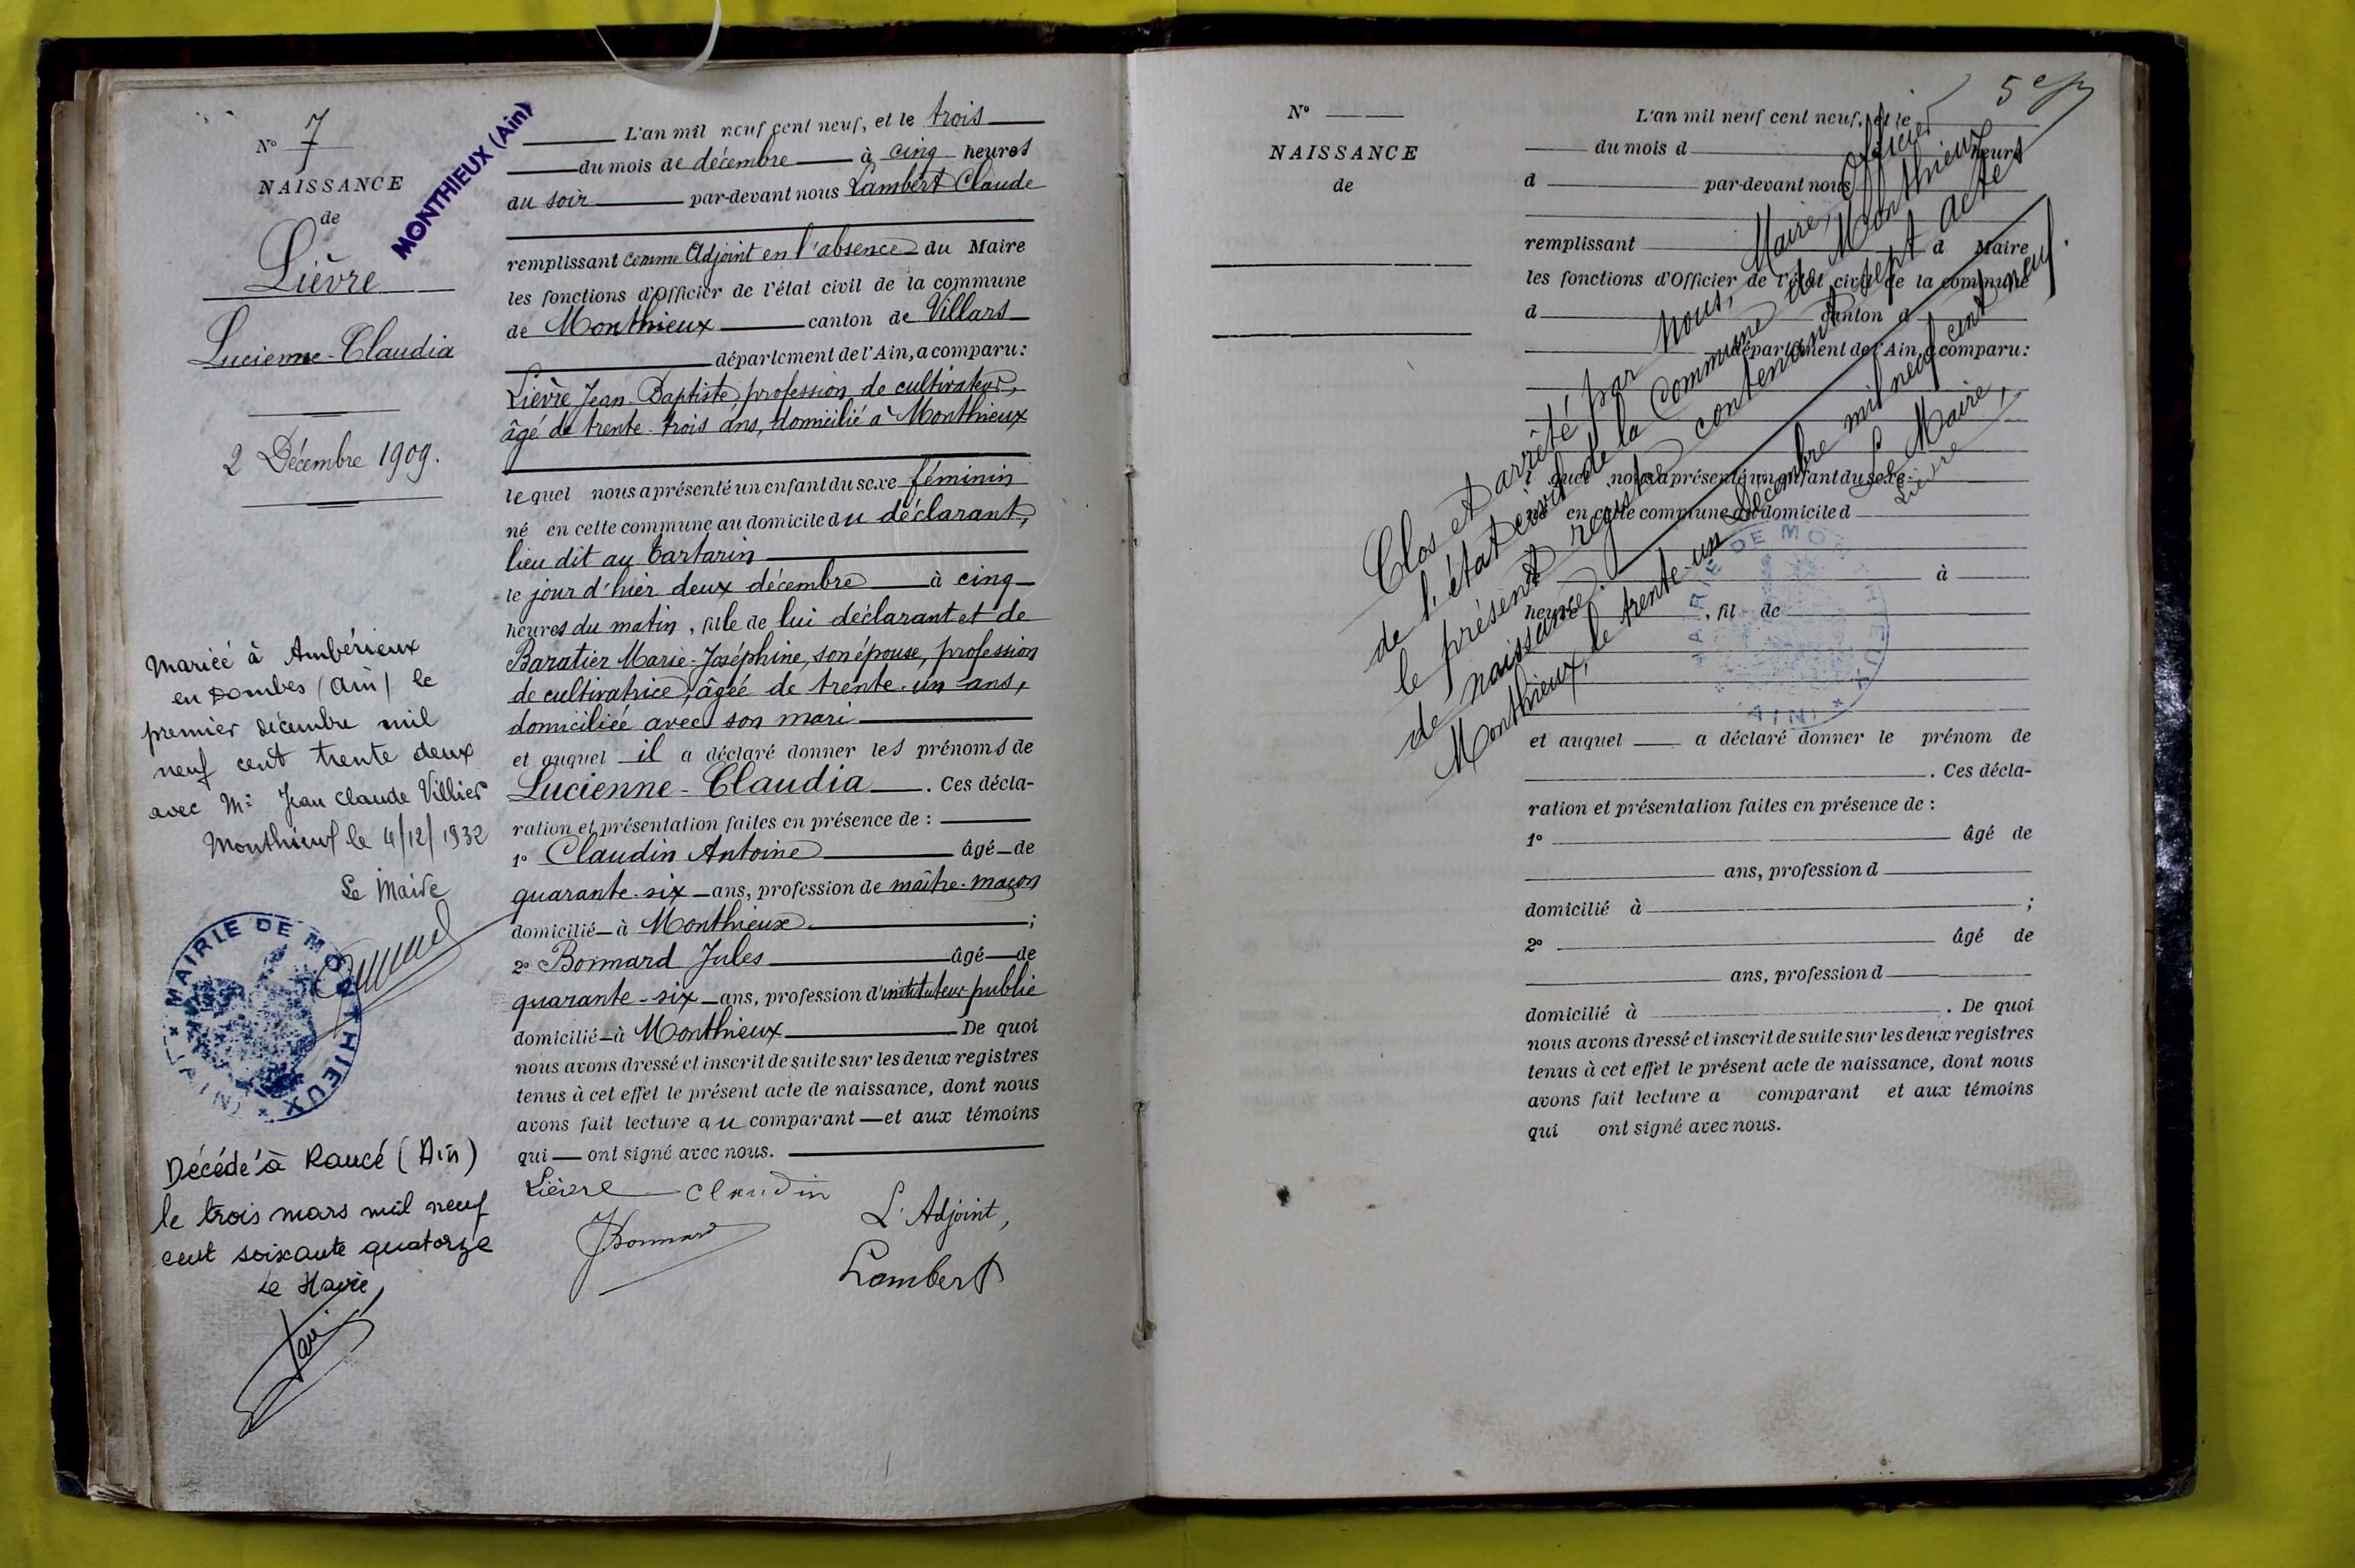 N° 7
NAISSANCE
de
Lièvre
Lucienne-Claudia
2 Décembre 1909.
MONTHIEUX (Ain)
Mariée à Ambérieux
en Dombes (Ain) le
premier décembre mil
neuf cent trente deux
avec Mr Jean Claude Villier
Monthieux le 4/12/1932
Le Maire
MAIRIE DE MONTHIEUX
(AIN)
Décédé à Rancé (Ain)
le trois mars mil neuf
cent soixante quatorze
Le Maire
L'an mil neuf cent neuf, et le trois
du mois de décembre à cinq heures
au soir par-devant nous Lambert Claude
remplissant comme Adjoint en l'absence du Maire
les fonctions d'Officier de l'état civil de la commune
de Monthieux canton de Villars
département de l'Ain, a comparu :
Lièvre Jean-Baptiste, profession de cultivateur,
âgé de trente-trois ans, domicilié à Monthieux
lequel nous a présenté un enfant du sexe féminin
né en cette commune au domicile du déclarant,
lieu dit au Tartarin
le jour d'hier deux décembre à cinq
heures du matin, fille de lui déclarant et de
Baratier Marie-Joséphine, son épouse, profession
de cultivatrice, âgée de trente-un ans,
domiciliée avec son mari
et auquel il a déclaré donner les prénoms de
Lucienne-Claudia. Ces décla-
ration et présentation faites en présence de :
1° Claudin Antoine âgé de
quarante-six ans, profession de maître-maçon
domicilié à Monthieux ;
2° Bonnard Jules âgé de
quarante-six ans, profession d'instituteur public
domicilié à Monthieux De quoi
nous avons dressé et inscrit de suite sur les deux registres
tenus à cet effet le présent acte de naissance, dont nous
avons fait lecture au comparant et aux témoins
qui ont signé avec nous.
Lièvre Claudin
JBonnard
L'Adjoint,
Lambert
N°
NAISSANCE
de
L'an mil neuf cent neuf, et le
du mois d heures
d par-devant nous
remplissant d Maire
les fonctions d'Officier de l'état civil de la commune
d canton d
département de l'Ain, a comparu :
quel nous a présenté un enfant du sexe
en cette commune au domicile d
à
heures , fil de
et auquel a déclaré donner le prénom de
. Ces décla-
ration et présentation faites en présence de :
1° âgé de
ans, profession d
domicilié à ;
2° âgé de
ans, profession d
domicilié à . De quoi
nous avons dressé et inscrit de suite sur les deux registres
tenus à cet effet le présent acte de naissance, dont nous
avons fait lecture a comparant et aux témoins
qui ont signé avec nous.
Clos et arrêté, par nous, Maire, Officier
de l'état civil de la commune de Monthieux
le présent registre contenant sept actes
de naissance.
Monthieux, le trente-un Décembre mil neuf cent neuf.
Le Maire,
Lièvre
MAIRIE DE MONTHIEUX
(AIN)